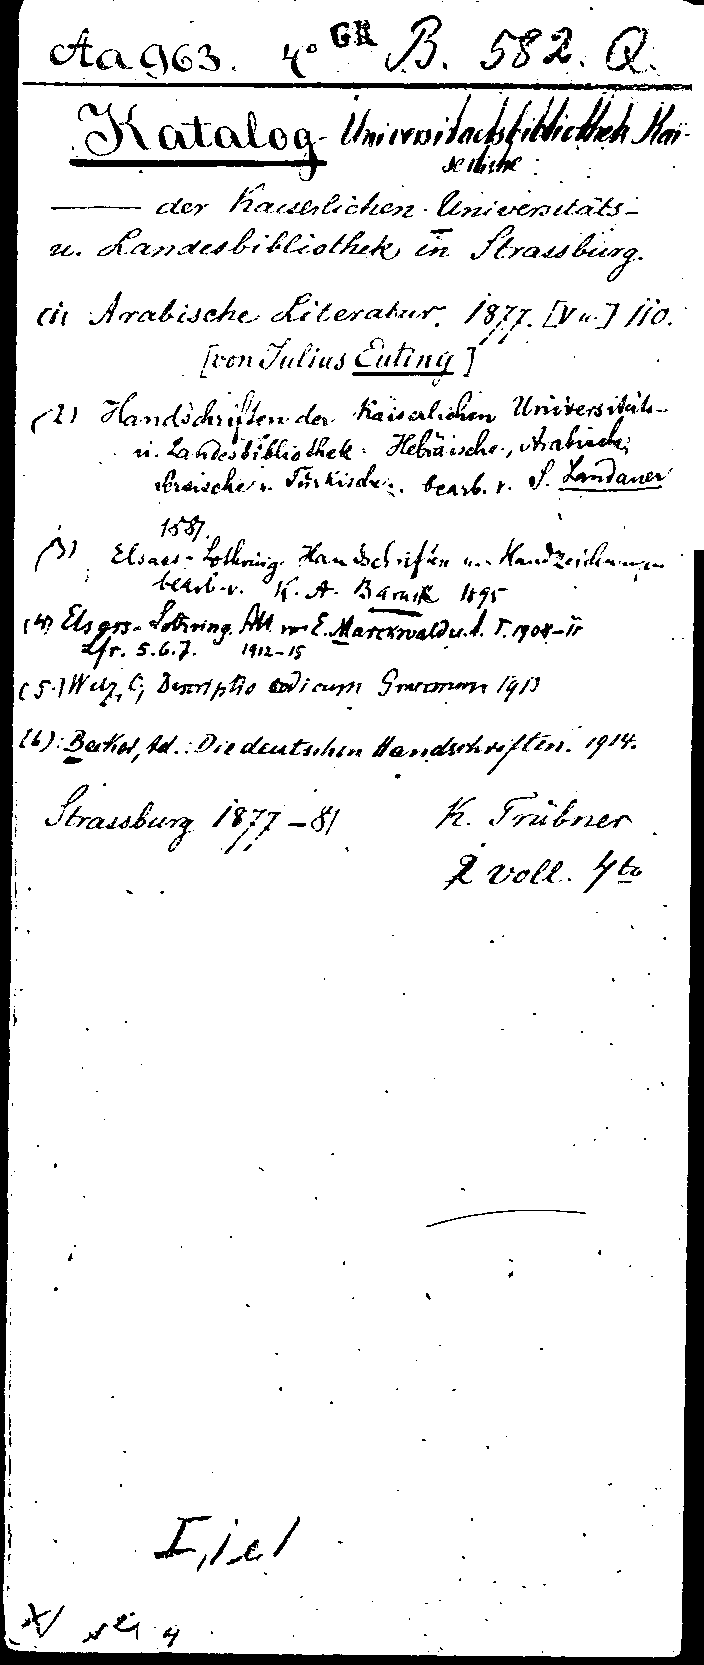 Aa 963. 4° GR B. 582. Q.
Katalog Universitaetsbibliothek Kai-
serliche
—— der Kaiserlichen Universitäts-
u. Landesbibliothek in Strassburg.
(1) Arabische Literatur. 1877. [V u.] 110.
[von Julius Euting]
(2) Handschriften der Kaiserlichen Universitäts-
u. Landesbibliothek. Hebräische, Arabische,
Persische u. Türkische. bearb. v. S. Landauer
1881.
(3) Elsaes-Lothring. Handschriften u. Handzeichnungen
bearb. v. K. A. Barack 1895
(4) Elsass-Lothring. Abt. von E. Marckwald u. A. T. 1908-11
Lfr. 5.6.7. 1912-15
(5.) Welz, C, Descriptio codicum Graecorum 1913
(6). Becker, Ad.: Die deutschen Handschriften. 1914.
Strassburg 1877-81 K. Trübner
2 voll. 4to